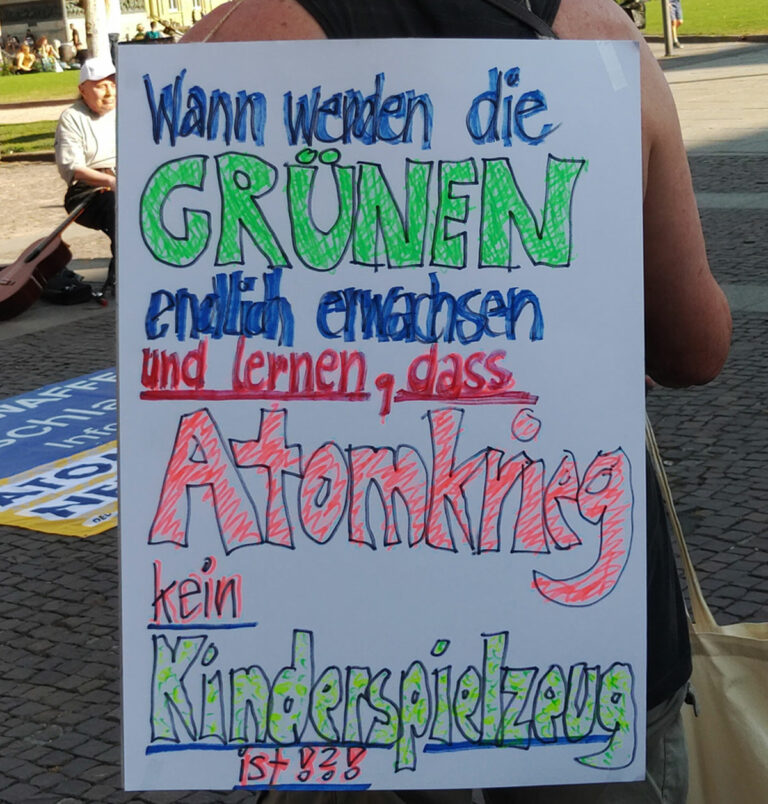 Wann werden die
GRÜNEN
endlich erwachsen
und lernen, dass
Atomkrieg
kein
Kinderspielzeug
ist!?!
WAFF
Schla
Info
ATO